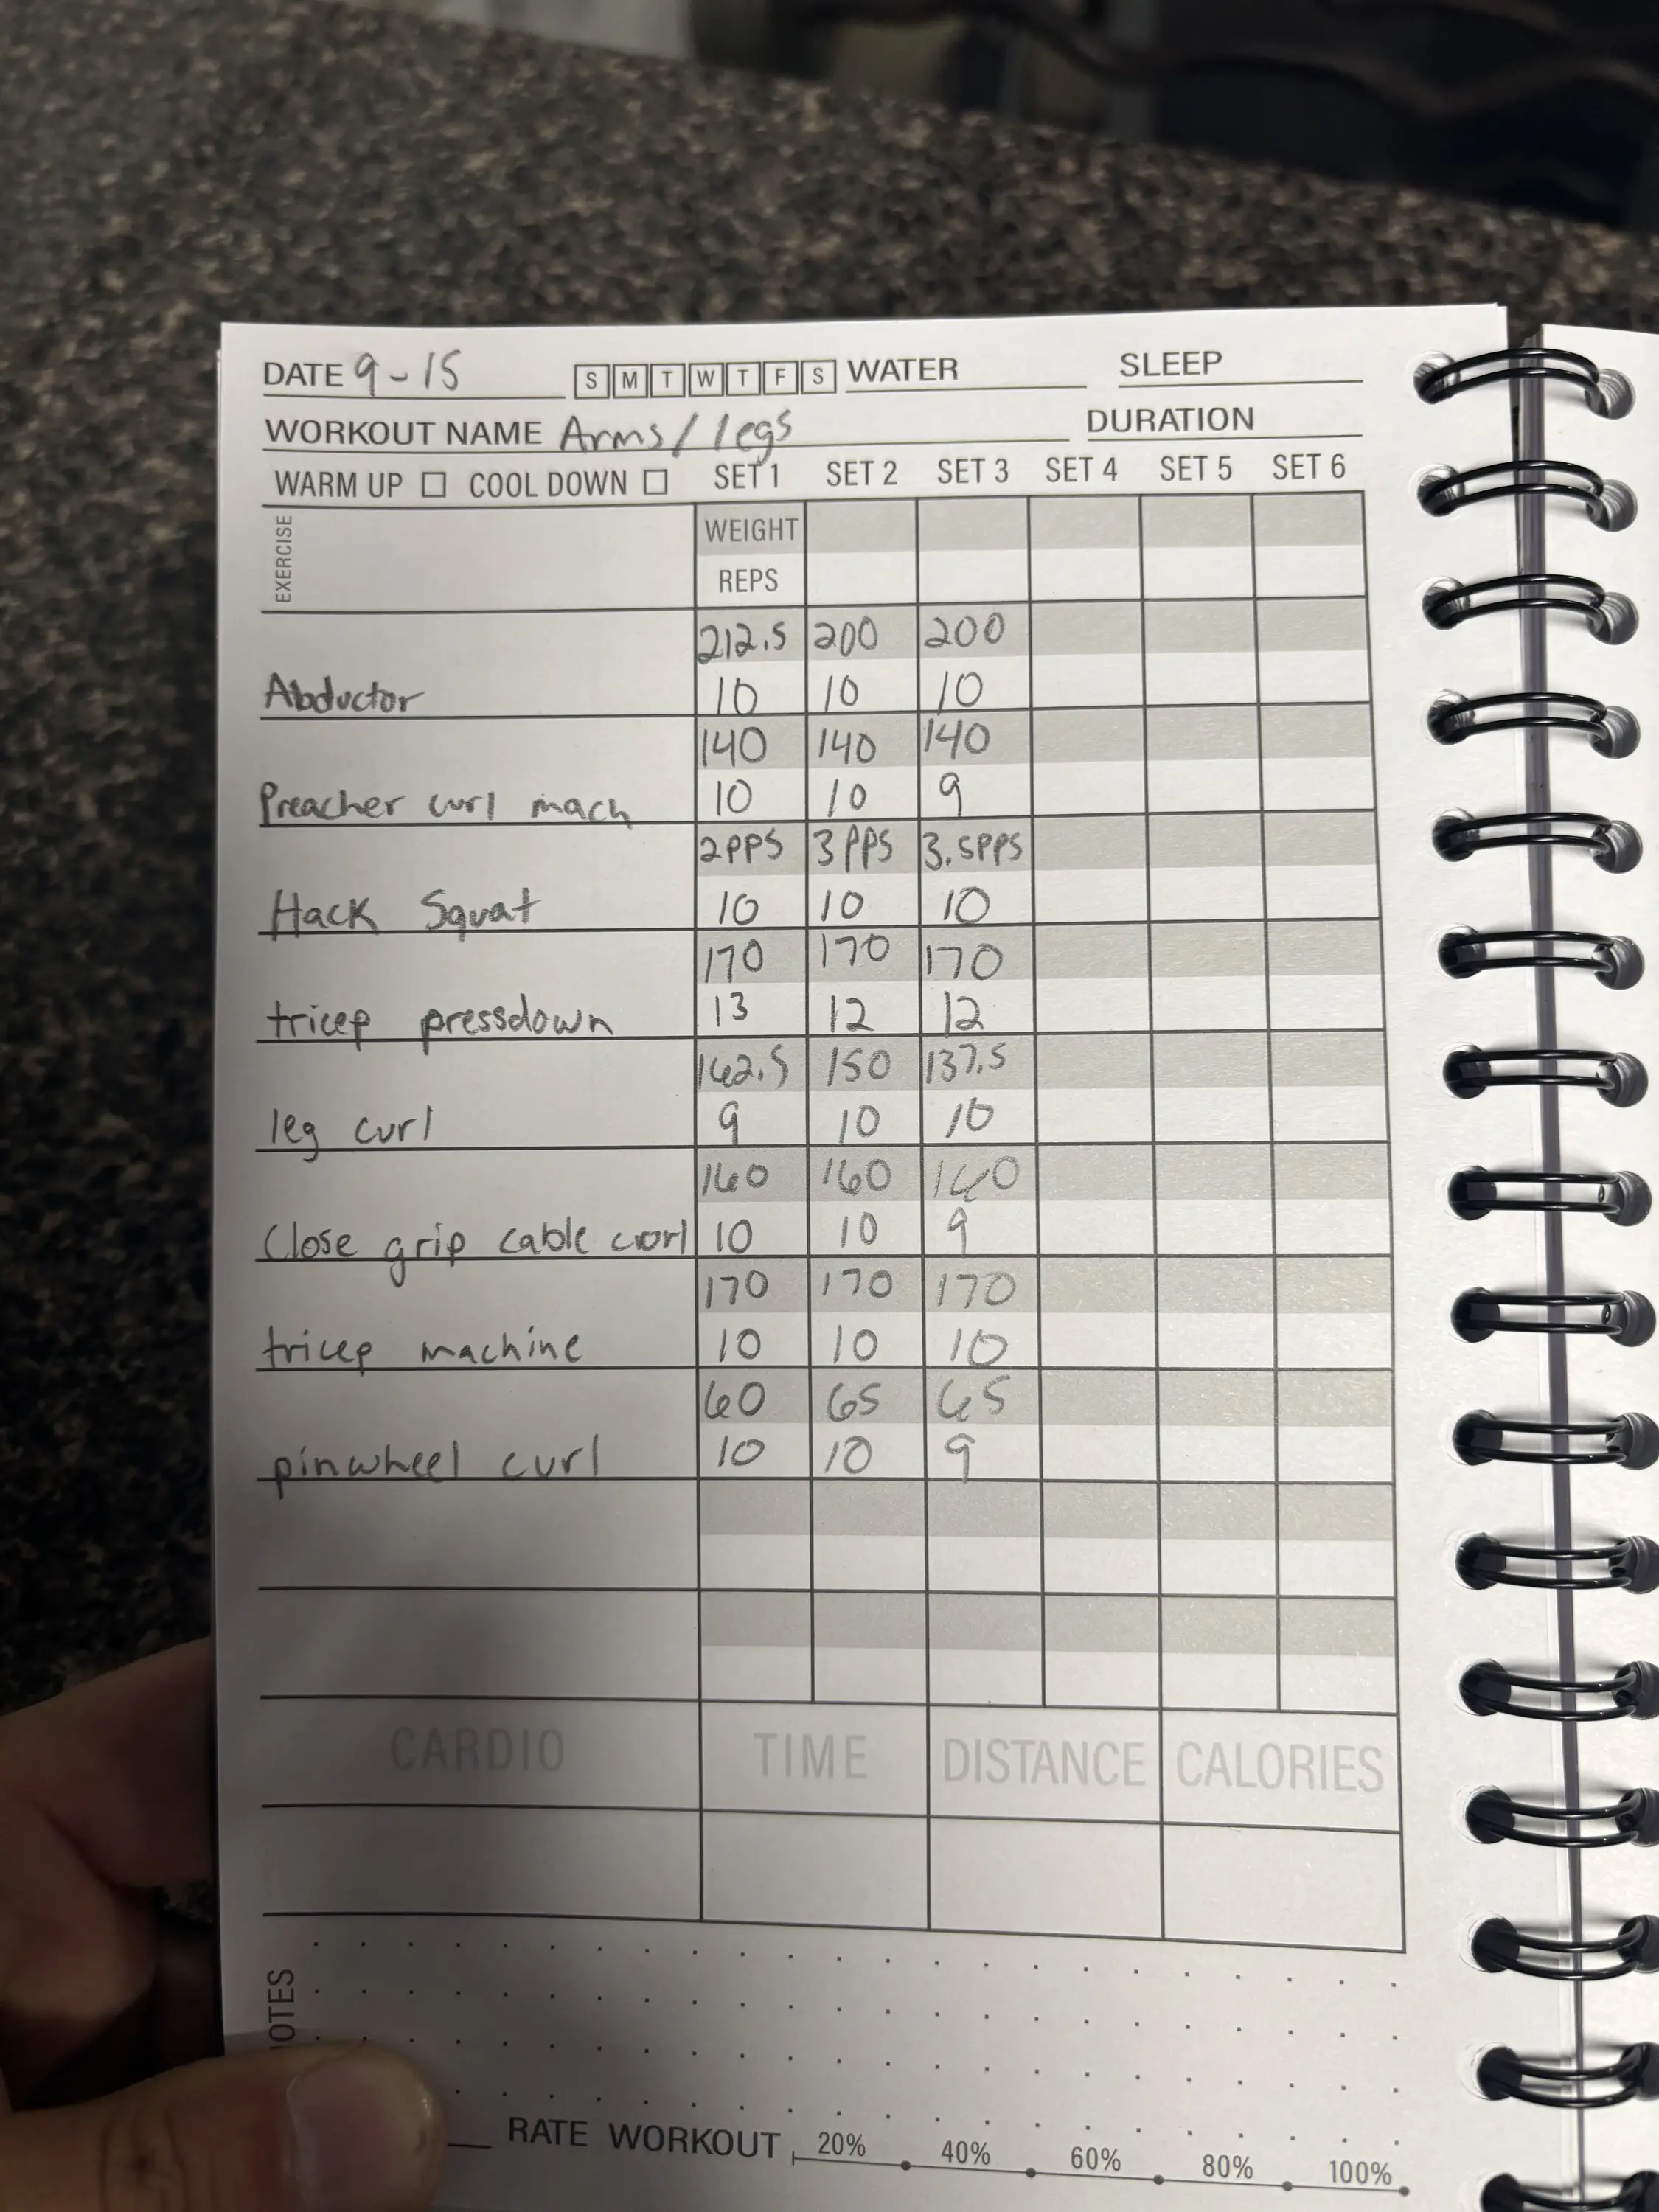 DATE 9-15 S M T W T F S WATER SLEEP
WORKOUT NAME Arms/legs DURATION
WARM UP COOL DOWN SET 1 SET 2 SET 3 SET 4 SET 5 SET 6
EXERCISE WEIGHT
REPS
212.5 200 200
Abductor 10 10 10
140 140 140
Preacher curl mach 10 10 9
2PPS 3PPS 3.5PPS
Hack Squat 10 10 10
170 170 170
tricep pressdown 13 12 12
162.5 150 137.5
leg curl 9 10 10
160 160 160
Close grip cable curl 10 10 9
170 170 170
tricep machine 10 10 10
60 65 65
pinwheel curl 10 10 9
CARDIO TIME DISTANCE CALORIES
OTES
RATE WORKOUT 20% 40% 60% 80% 100%